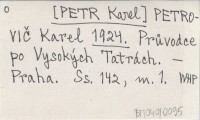 o [PETR Karel] PETRO-
VIČ Karel 1924. Průvodce
po Vysokých Tatrách. –
Praha. Ss. 142, m. 1.